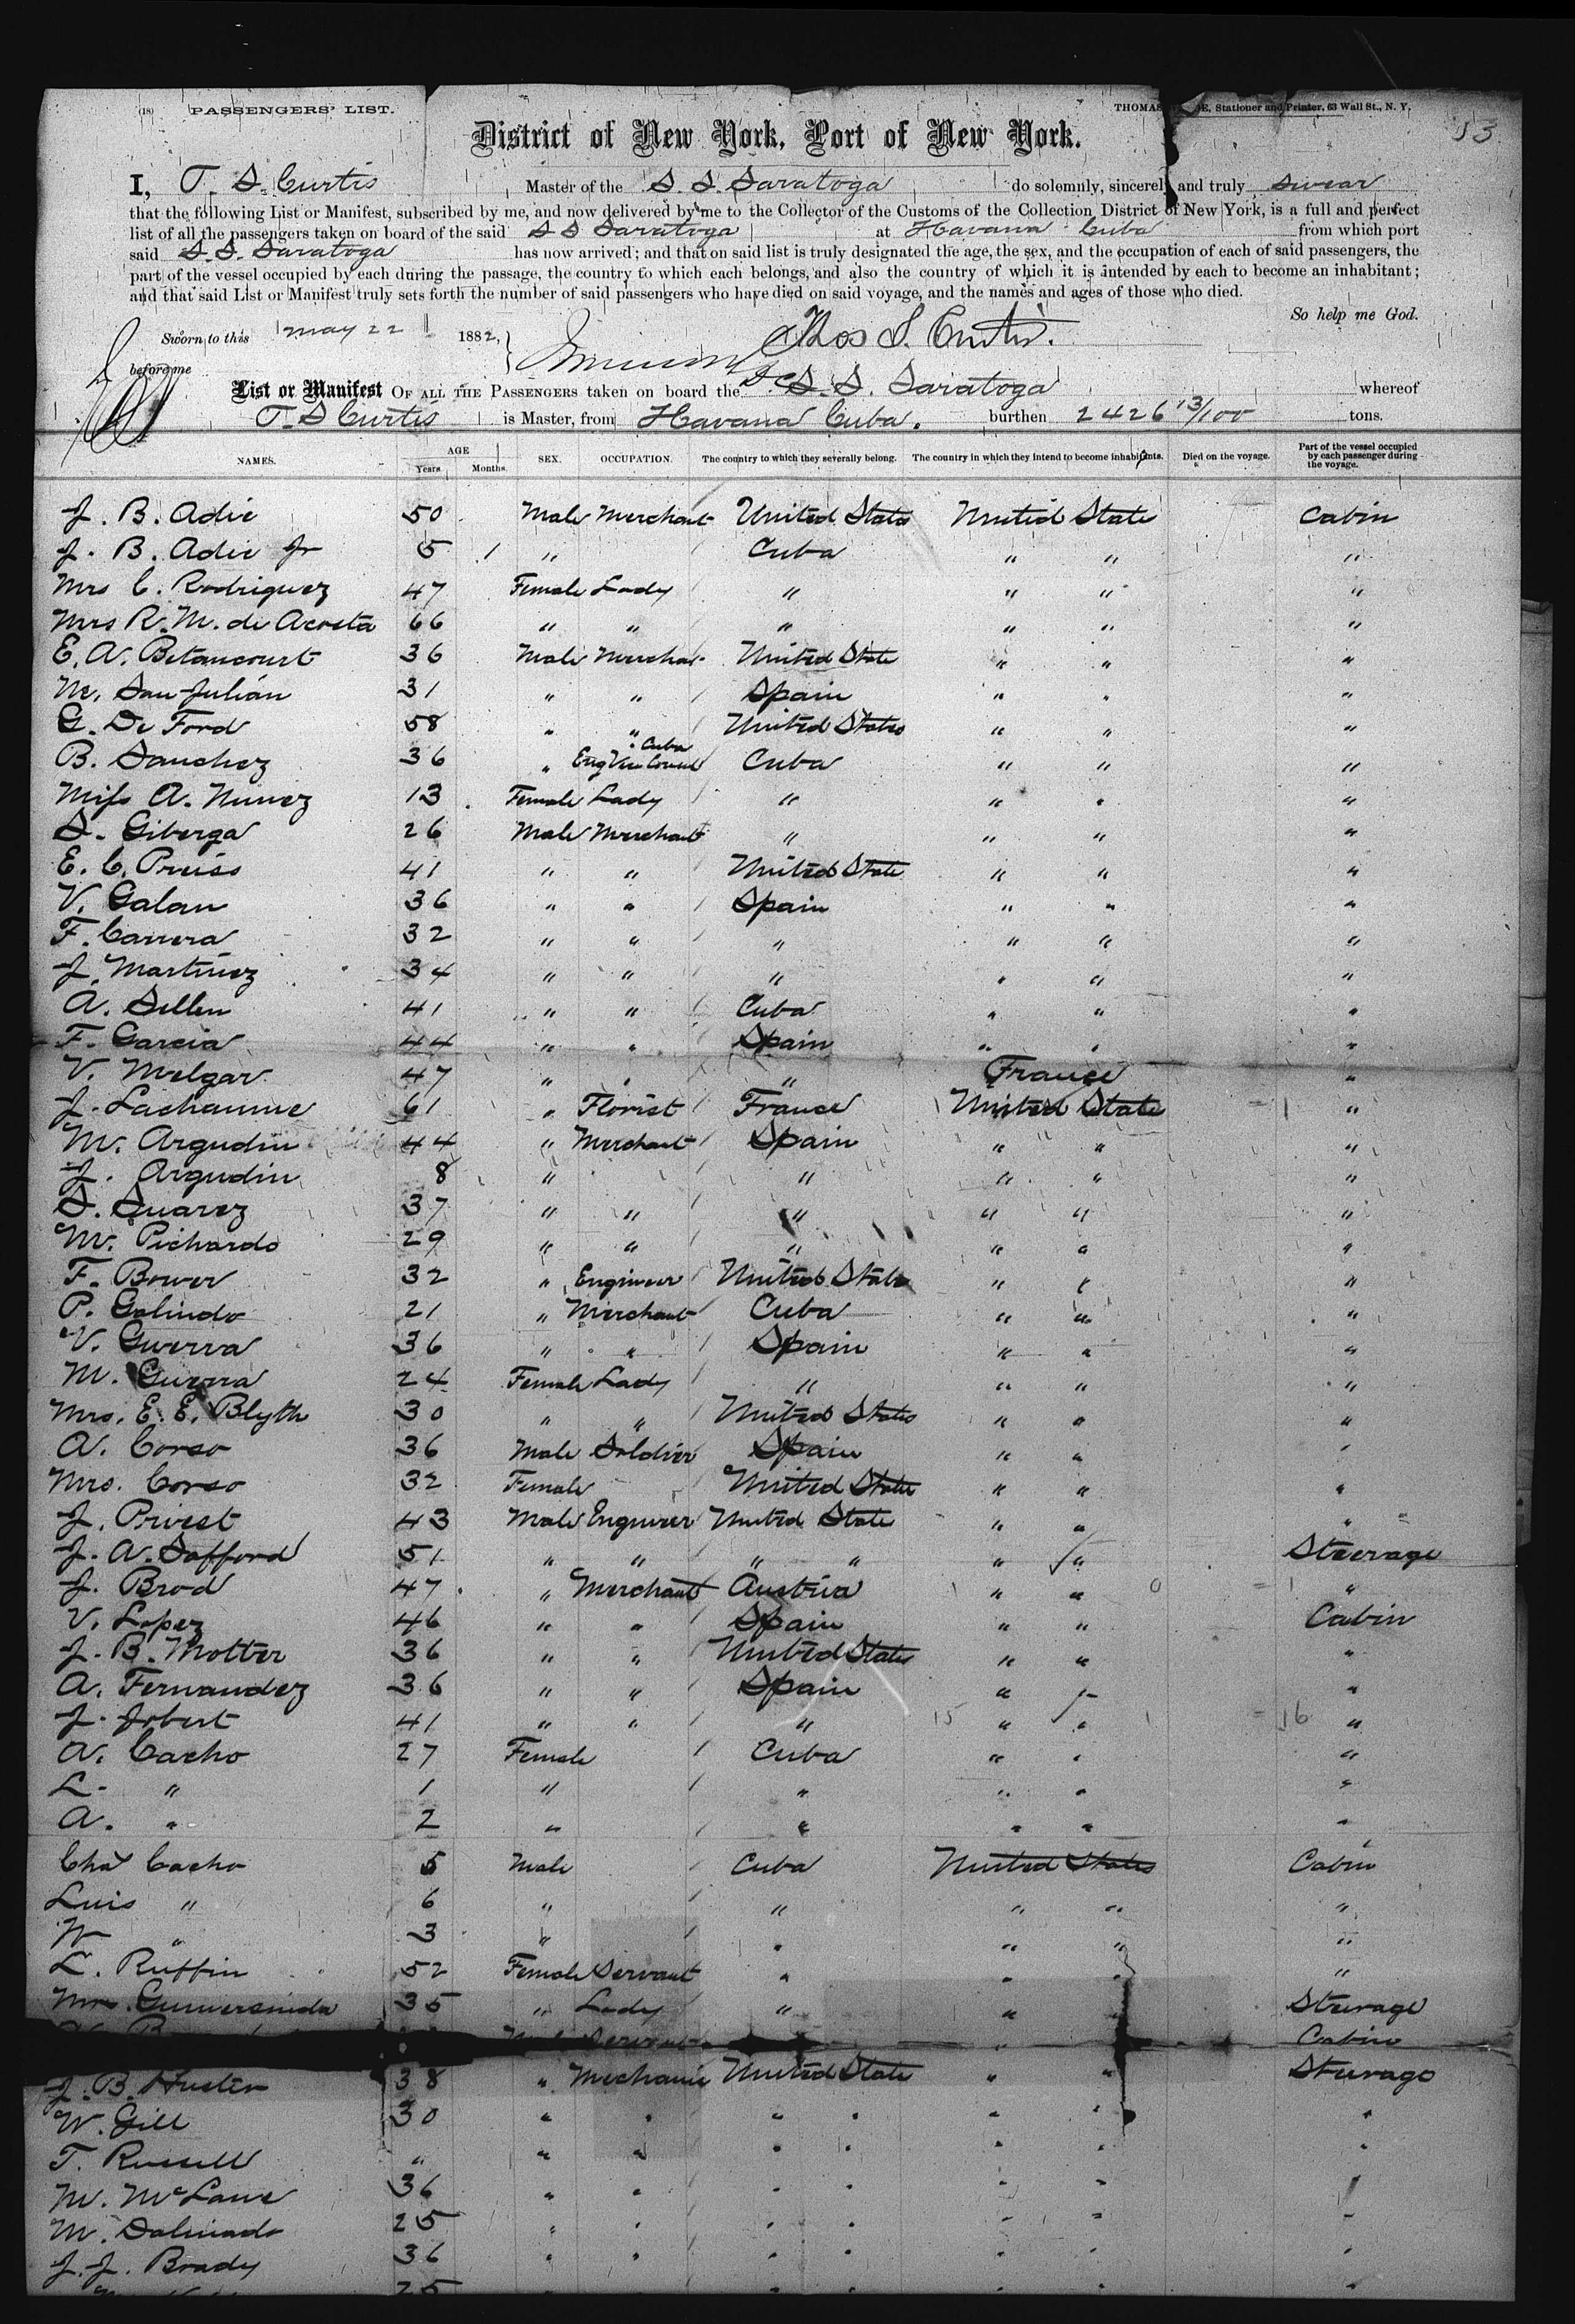 (18) PASSENGERS' LIST.
THOMAS E, Stationer and Printer, 63 Wall St., N. Y.
53
District of New York, Port of New York.
I, T. S. Curtis Master of the S. S. Saratoga do solemnly, sincerely and truly swear
that the following List or Manifest, subscribed by me, and now delivered by me to the Collector of the Customs of the Collection District of New York, is a full and perfect
list of all the passengers taken on board of the said S S Saratoga at Havana Cuba from which port
said S. S. Saratoga has now arrived; and that on said list is truly designated the age, the sex, and the occupation of each of said passengers, the
part of the vessel occupied by each during the passage, the country to which each belongs, and also the country of which it is intended by each to become an inhabitant;
and that said List or Manifest truly sets forth the number of said passengers who have died on said voyage, and the names and ages of those who died.
So help me God.
Sworn to this May 22 1882, Thos S. Curtis.
before me
List or Manifest OF ALL THE PASSENGERS taken on board the S. S. Saratoga whereof
T. S Curtis is Master, from Havana Cuba. burthen 2426 13/100 tons.
NAMES. AGE Years. Months. SEX. OCCUPATION. The country to which they severally belong. The country in which they intend to become inhabitants. Died on the voyage. Part of the vessel occupied by each passenger during the voyage.
J. B. Adie 50 Male Merchant United States United State Cabin
J. B. Adie Jr 5 1 " Cuba " " "
Mrs C. Rodriguez 47 Female Lady " " " "
Mrs R. M. de Acosta 66 " " " " " "
E. A. Betancourt 36 Male Merchat United State " " "
M. San Julián 31 " " Spain " " "
G. De Ford 58 " " United States " " "
B. Sanchez 36 " Eng Vice Consul Cuba Cuba " " "
Miss A. Nunez 13 Female Lady " " " "
S. Giberga 26 Male Merchant " " " "
E. C. Preiss 41 " " United State " " "
V. Galan 36 " " Spain " " "
F. Carrera 32 " " " " " "
J. Martinez 34 " " " " " "
A. Sellen 41 " " Cuba " " "
F. Garcia 44 " " Spain " " "
V. Melgar 47 " " " France "
J. Lachaume 61 " Florist France United State "
M. Argudin 44 " Merchant Spain " " "
J. Argudin 8 " " " " "
S. Suarez 37 " " " " " "
M. Pichardo 29 " " " " " "
F. Bower 32 " Engineer United State " " "
P. Galindo 21 " Merchant Cuba " " "
V. Guerra 36 " " Spain " " "
M. Guerra 24 Female Lady " " " "
Mrs. E. E. Blyth 30 " " United States " " "
A. Corso 36 Male Soldier Spain " " "
Mrs. Corso 32 Female United State " " "
J. Priest 43 Male Engineer United State " " "
J. A. Safford 51 " " " " " " Steerage
J. Brod 47 " Merchant Austria " " "
V. Lopez 46 " " Spain " " Cabin
J. B. Motter 36 " " United States " " "
A. Fernandez 36 " " Spain " " "
J. Jobert 41 " " " 15 " " 16 "
A. Cacho 27 Female Cuba " " "
L. " 1 " " " " "
A. " 2 " " " " "
Chas Cacho 5 Male Cuba United States Cabin
Luis " 6 " " " " "
W " 3 " " " " "
L. Ruffin 52 Female Servant " " " "
Mrs. 35 " Lady " " " Steerage
Servant " Cabin
J. B. Huston 38 " Mechanic United State " " Steerage
W. Gill 30 " " " " " " "
T. Russell " " " " " " " "
M. McLane 36 " " " " " "
M. 25 " " " " " " "
J. J. Brady 36 " " " " " " "
25 " " " "